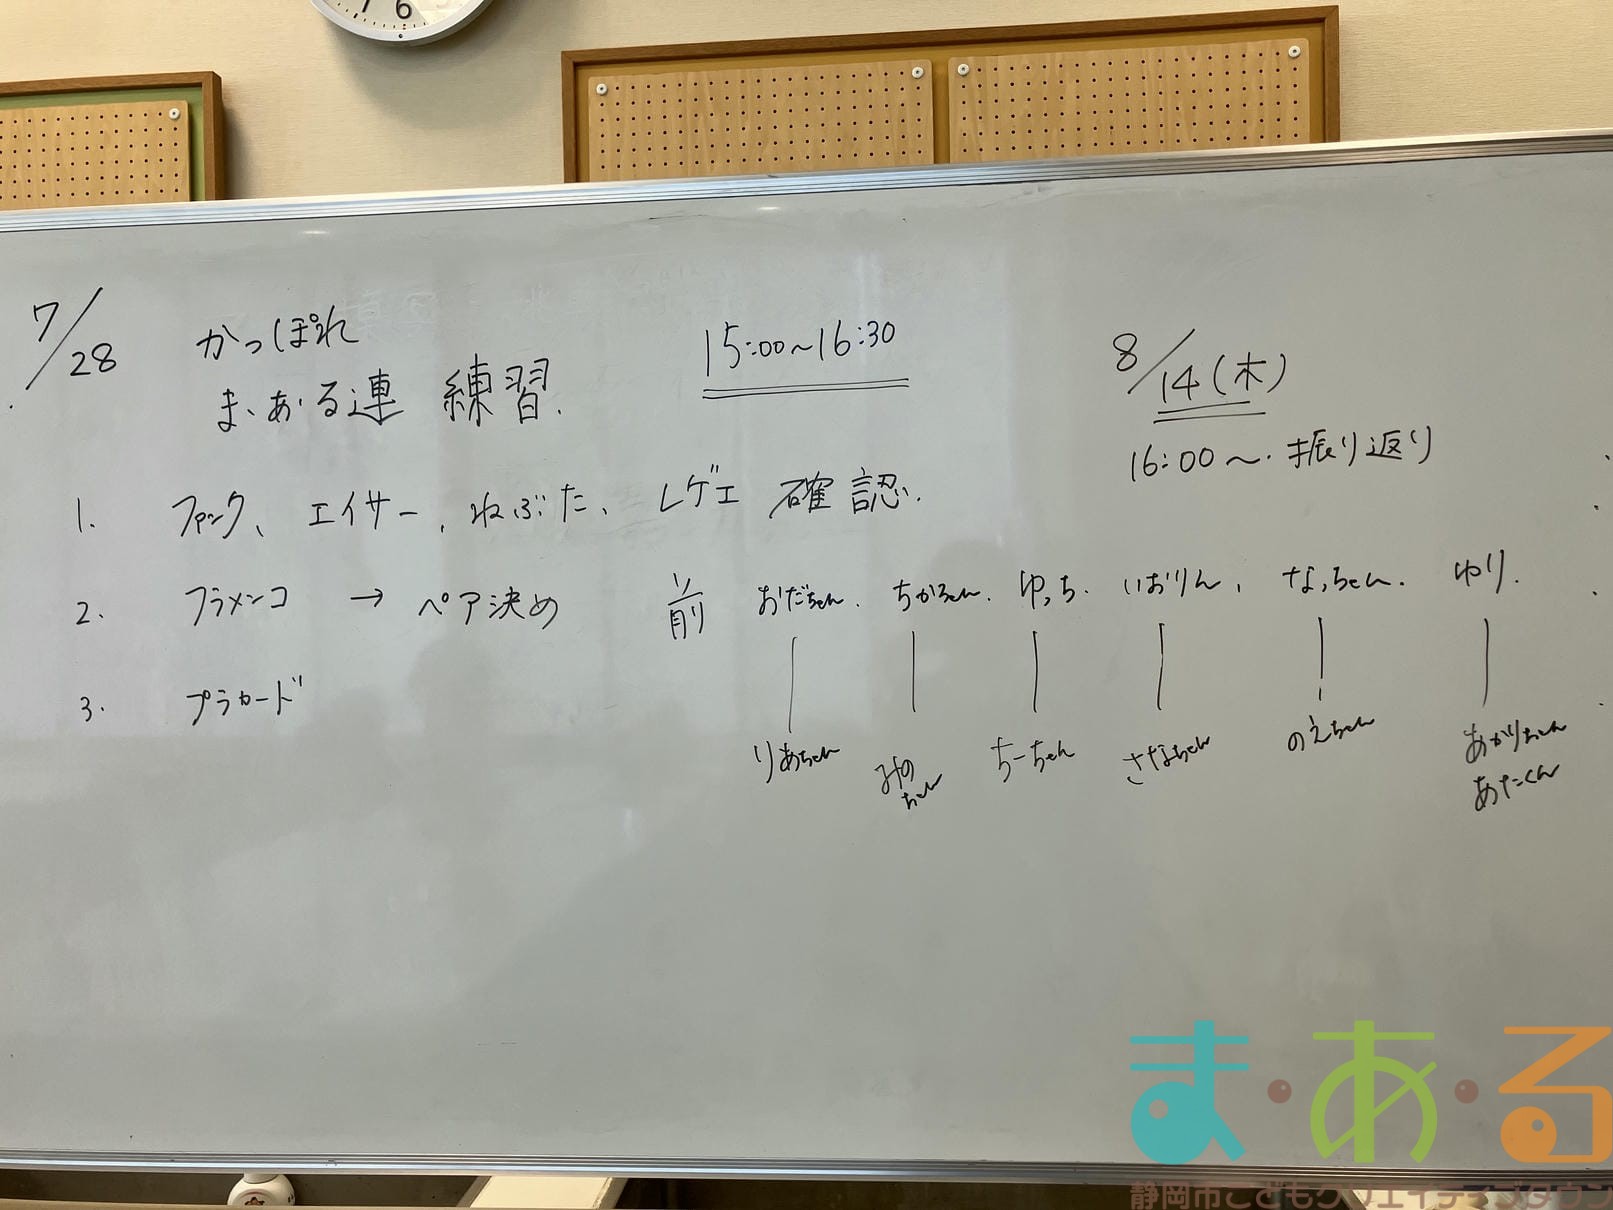 7/28 かっぽれ 15:00~16:30 8/14(木)
ま・ある連 練習.
16:00~. 振り返り
1. ファンク、エイサー、ねぶた、レゲエ 確認.
2. フラメンコ → ペア決め 前 おだちゃん. ちかちゃん. ゆっち. いおりん, なっちゃん. ゆり.
3. プラカード
りあちゃん みのちゃん ちーちゃん さなちゃん のえちゃん あかりちゃん
あたくん
ま・あ・る
静岡市こどもクリエイティブタウン
7 6